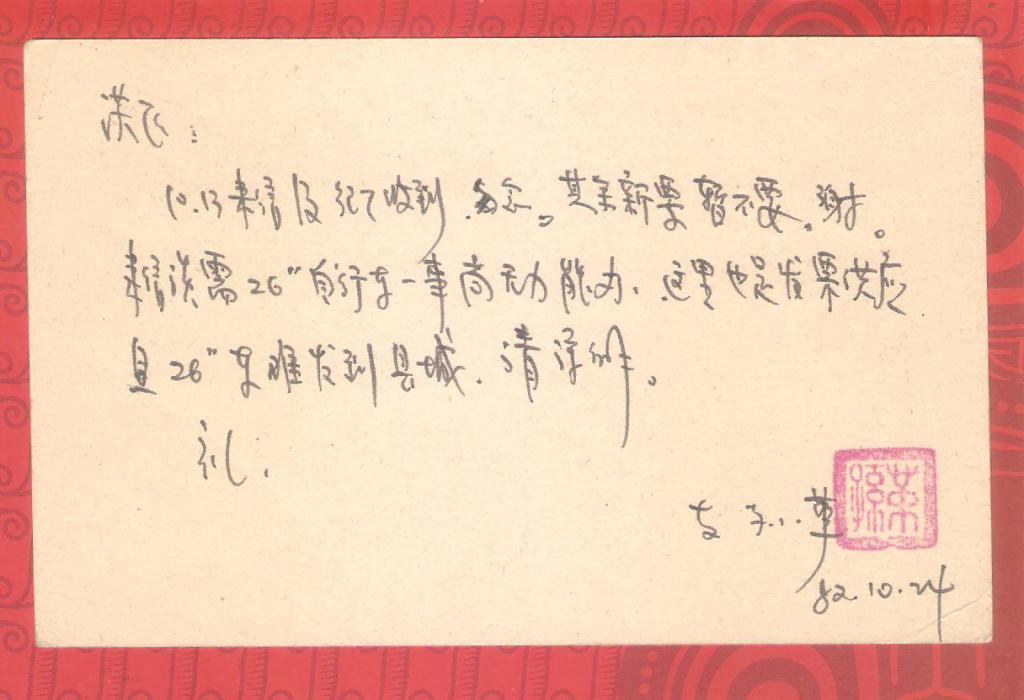 洪飞：
10.13来信及纪7收到，勿念。其余新票暂不要，谢。
来信谈需26"自行车一事尚无力能办，这里也是发票供应
且26"车难发到县城，请谅解。
礼，
友 孙小苹
82.10.24